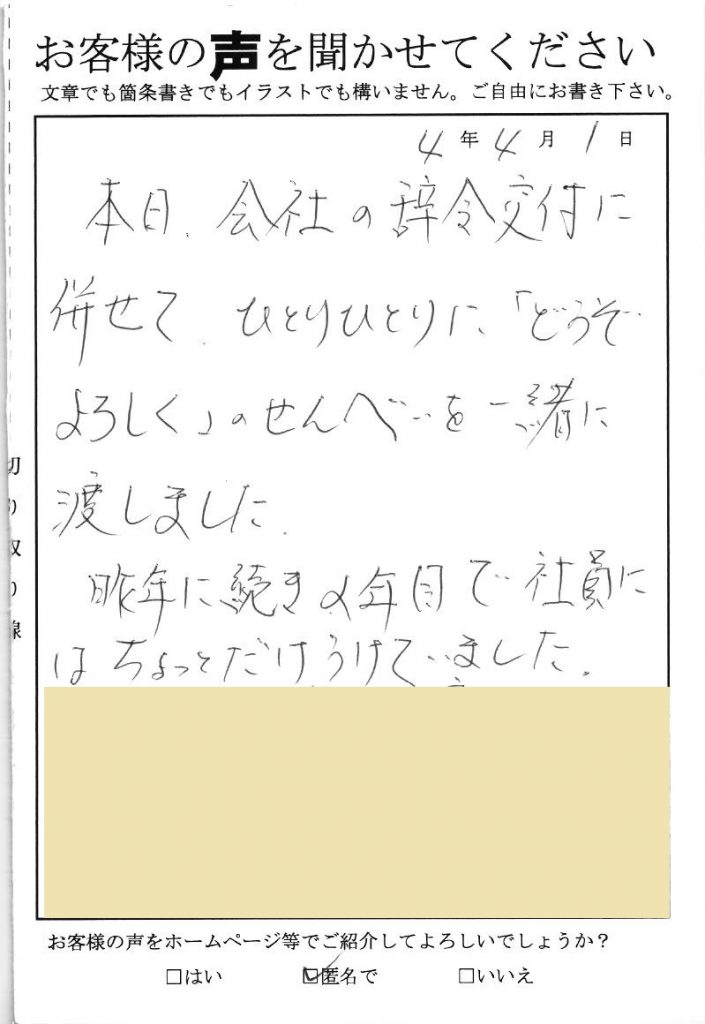 お客様の声を聞かせてください
文章でも箇条書きでもイラストでも構いません。ご自由にお書き下さい。
4年4月1日
本日、会社の辞令交付に
併せて、ひとりひとりに、「どうぞ
よろしく」のせんべいを一緒に
渡しました。
昨年に続き2年目で社員に
はちょっとだけうけていました。
切り取り線
お客様の声をホームページ等でご紹介してよろしいでしょうか？
□はい ☑匿名で □いいえ